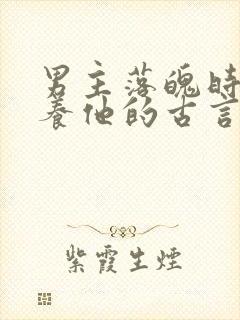 男主落魄時
養他的古言
紫霞生煙